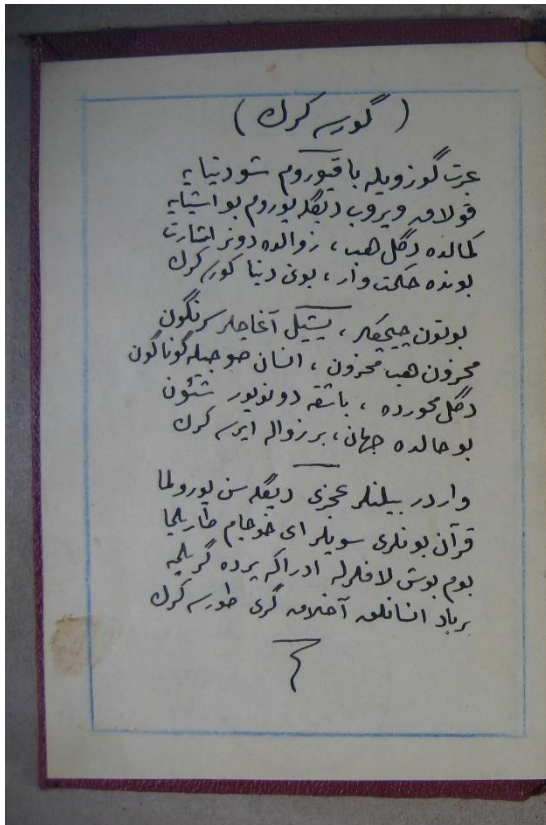 ( گورسه كرك )
عبرت گوزويله باقيورم شو دنيايه
قولاق ويروب ديڭله‌يورم بو اشيايه
كمالده دگل هب ، زوالده دونر اشارت
بونده حكمت وار ، بونى دنيا كورسه كرك
بوتون چيچكلر ، يشيل آغاجلر سرنگون
محزون هب محزون ، انسان گوناگون
دگل محورده ، باشقه دونويور شئون
بو حالده جهان ، بر زواله ايرسه كرك
واردر بيلنلر عجزى ديڭله سن يورولما
قرآن بونلرى سويلر اى خوجام طاريلما
بوم بوش لافلرله ادراكه پرده
برباد انسانلق آخلاق گرى طورسه كرك